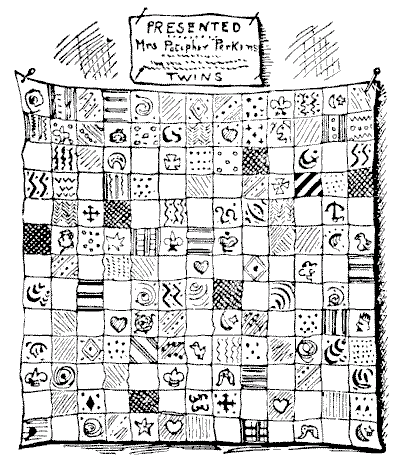 PRESENTED
Mrs Potipher Perkins
TWINS